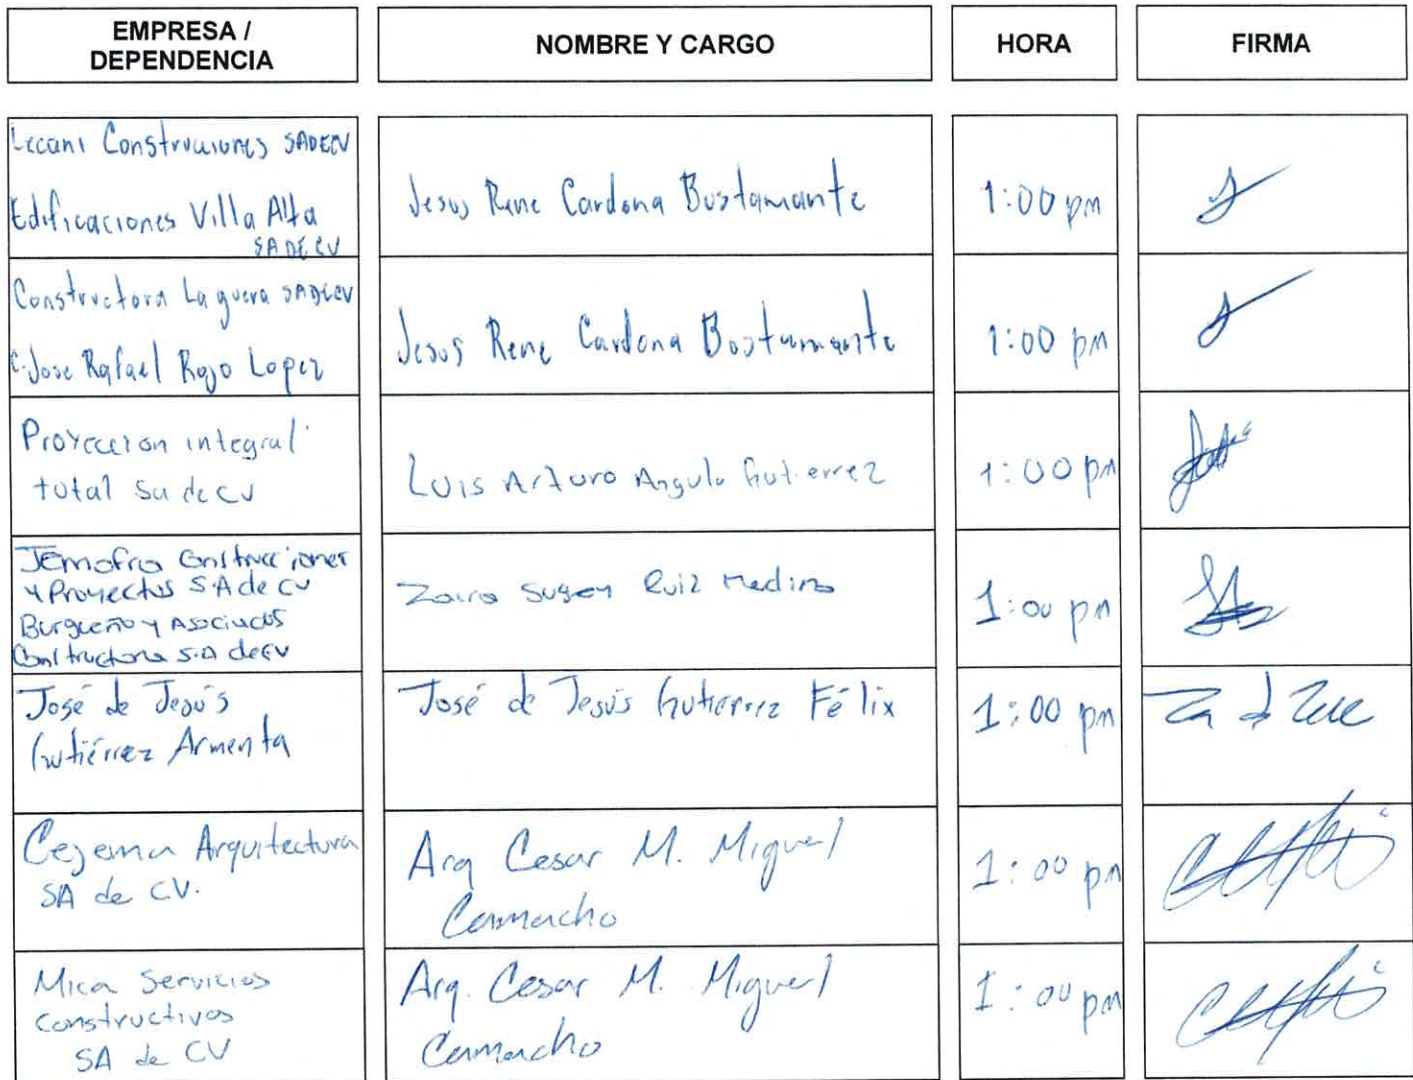 EMPRESA /
DEPENDENCIA
NOMBRE Y CARGO
HORA
FIRMA
Leccani Construciones SADECV
Edificaciones Villa Alta
SA DE CV
Jesus Rene Cardona Bustamante
1:00 pm
Constructora La guera SADECV
C. Jose Rafael Rojo Lopez
Jesus Rene Cardona Bustamante
1:00 pm
Proyeccion integral
total Sa de CV
Luis Arturo Angulo Gutierrez
1:00 pm
Jemofra Construcciones
y Proyectos S.A de CV
Burgueño y Asociados
Constructora S.A de CV
Zaira Sugey Ruiz Medina
1:00 pm
José de Jesús
Gutiérrez Armenta
José de Jesús Gutierrez Félix
1:00 pm
Cejema Arquitectura
SA de CV.
Arq Cesar M. Miguel
Camacho
1:00 pm
Mica Servicios
Constructivos
SA de CV
Arq. Cesar M. Miguel
Camacho
1:00 pm